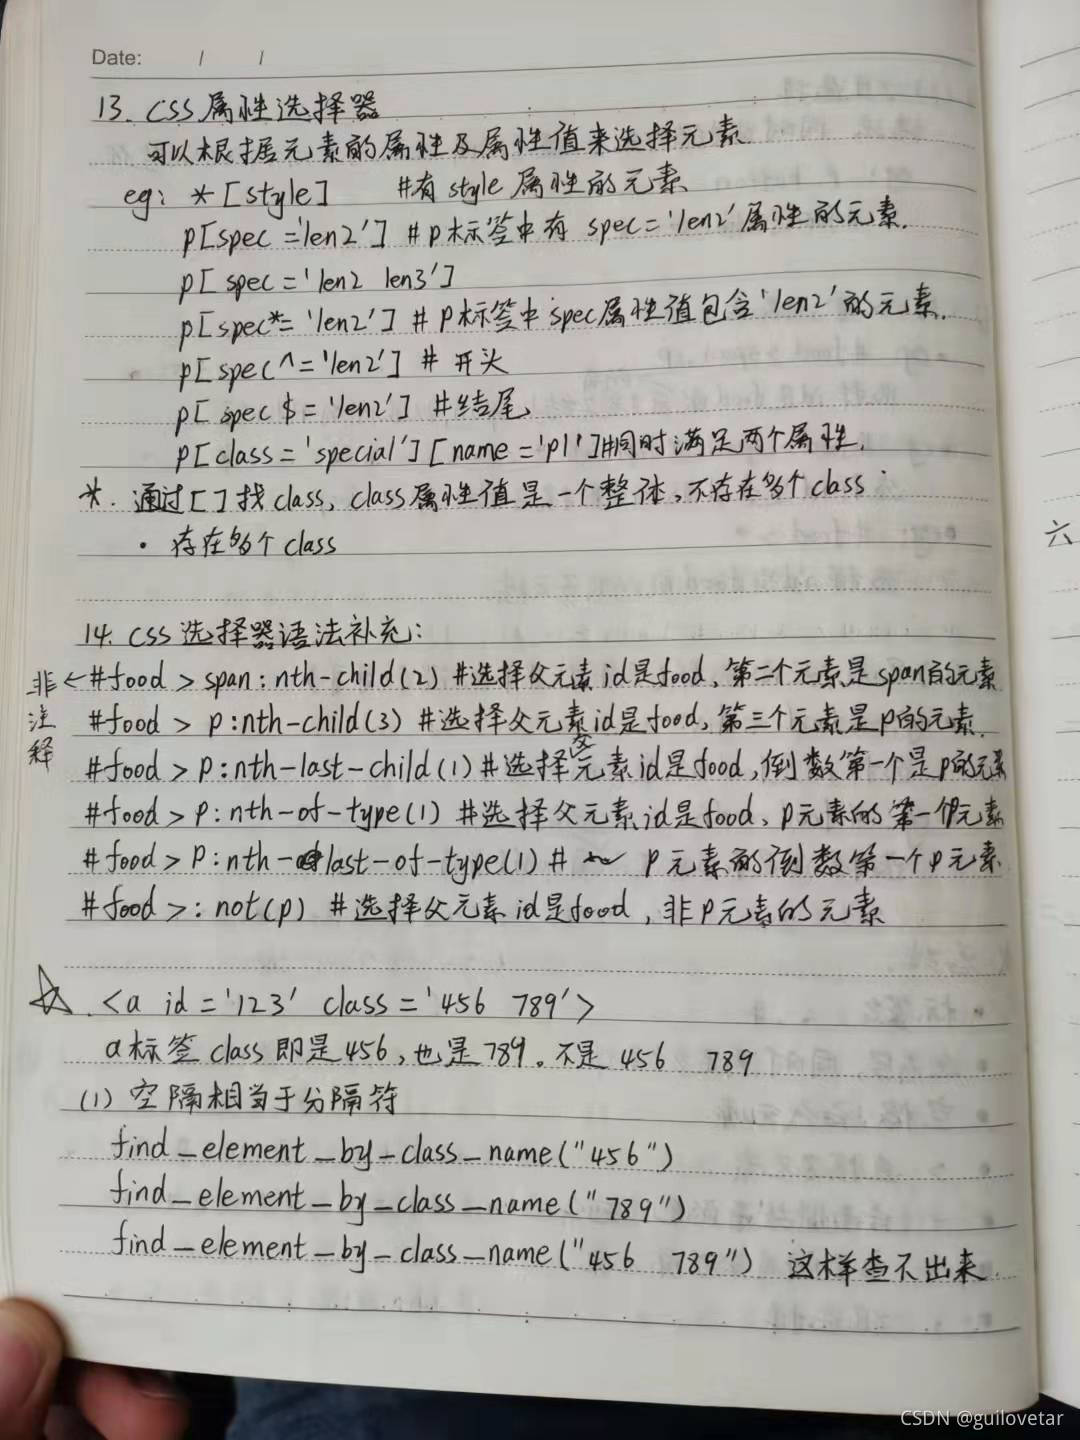 Date: / /
13. CSS 属性选择器
可以根据元素的属性及属性值来选择元素
eg: *[style] #有 style 属性的元素
p[spec='len2'] #p标签中有 spec='len2' 属性的元素.
p[spec='len2 len3']
p[spec*='len2'] #p标签中spec属性值包含'len2'的元素.
p[spec^='len2'] #开头
p[spec$='len2'] #结尾
p[class='special'][name='p1']#同时满足两个属性.
*. 通过[]找class, class属性值是一个整体,不存在多个class
· 存在多个class
14. CSS 选择器语法补充:
非注释 ← #food > span:nth-child(2) #选择父元素id是food,第二个元素是span的元素
#food > p:nth-child(3) #选择父元素id是food,第三个元素是p的元素.
#food > p:nth-last-child(1) #选择父元素id是food,倒数第一个是p的元素
#food > p:nth-of-type(1) #选择父元素id是food,p元素的第一个p元素
#food > p:nth-last-of-type(1) # ~ p元素的倒数第一个p元素
#food >:not(p) #选择父元素id是food,非p元素的元素
☆. <a id='123' class='456 789'>
a标签class即是456,也是789。不是 456 789
(1) 空隔相当于分隔符
find_element_by_class_name("456")
find_element_by_class_name("789")
find_element_by_class_name("456 789") 这样查不出来
六
CSDN @guilovetar